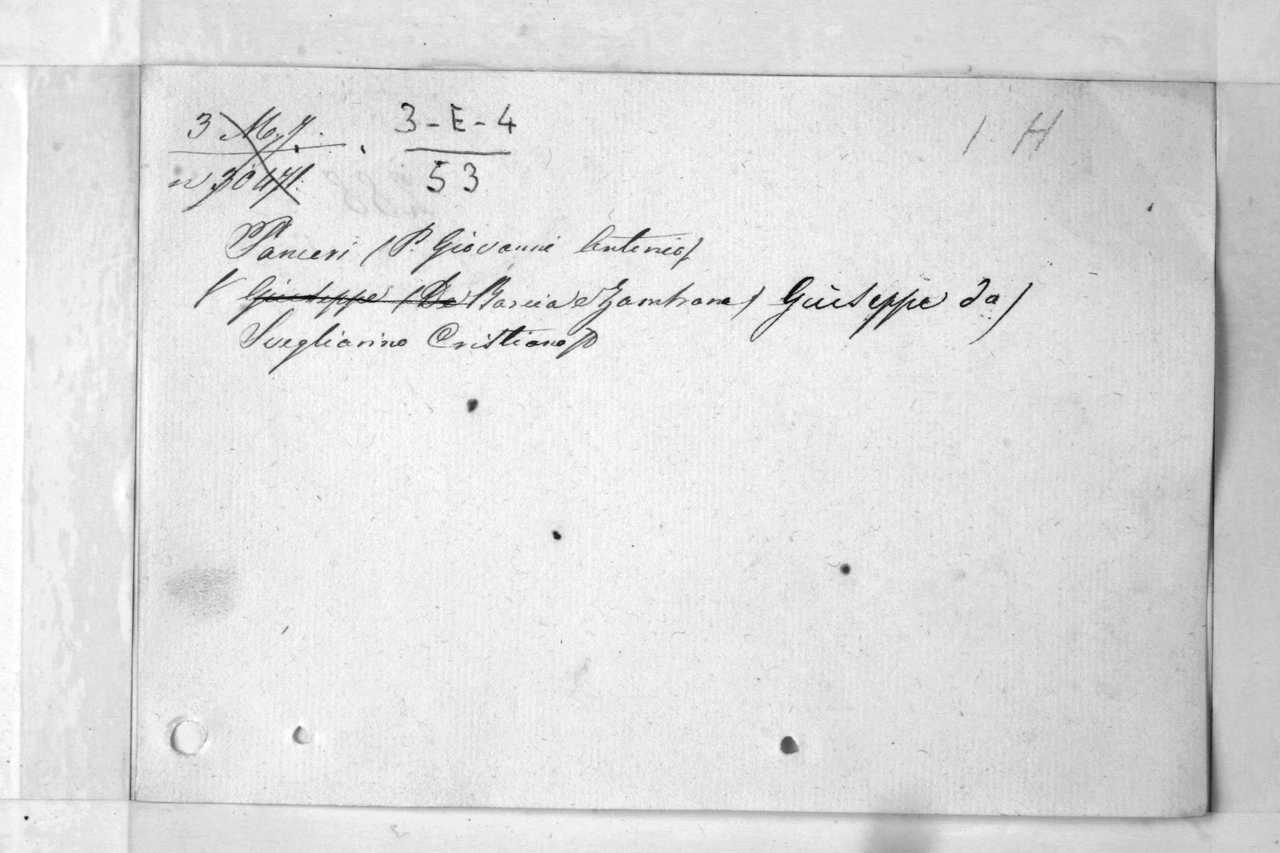 3 3-E-4 1 H
53
Panceri (P. Giovanni Antonio)
V Giuseppe (De Barcia e Zambrana) Giuseppe da)
Svegliarino Cristiano